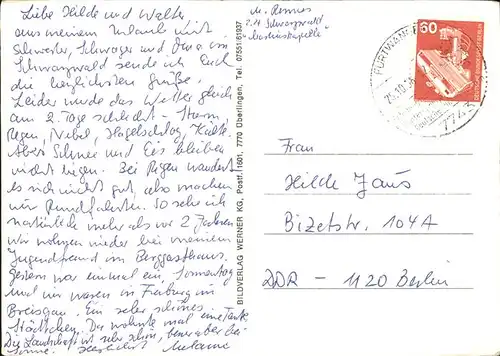 Liebe Hilde und Walter
aus meinem Urlaub mit
Schwester, Schwager und Oma im
Schwarzwald sende ich Euch
die herzlichsten Grüße.
Leider wurde das Wetter gleich
am 2. Tage schlecht - Sturm,
Regen, Nebel, Hagelschlag, Kälte.
Aber Schnee und Eis bleiben
nicht liegen. Bei Regen wandert
es sich nicht gut, also machen
wir Rundfahrten. So sehe ich
natürlich mehr als vor 2 Jahren
Wir wohnen wieder bei meinem
Jugendfreund im Berggasthaus.
Gestern war einmal ein Sonnentag
und wir waren in Freiburg im
Breisgau. Ein sehr schönes
Städtchen. Da wohnte mal eine Tante
Die Landschaft ist sehr schön, besonders bei
Sonne. Herzlichst Melanie
BILDVERLAG WERNER KG, Postf. 1601, 7770 Überlingen, Tel. 07551/61937
z.Zt. Schwarzwald
"Martinskapelle"
FURTWANGEN
25.10.
7743
60
DEUTSCHE BUNDESPOST BERLIN
Frau
Hilde Jaus
Bizetstr. 104A
DDR - 1120 Berlin